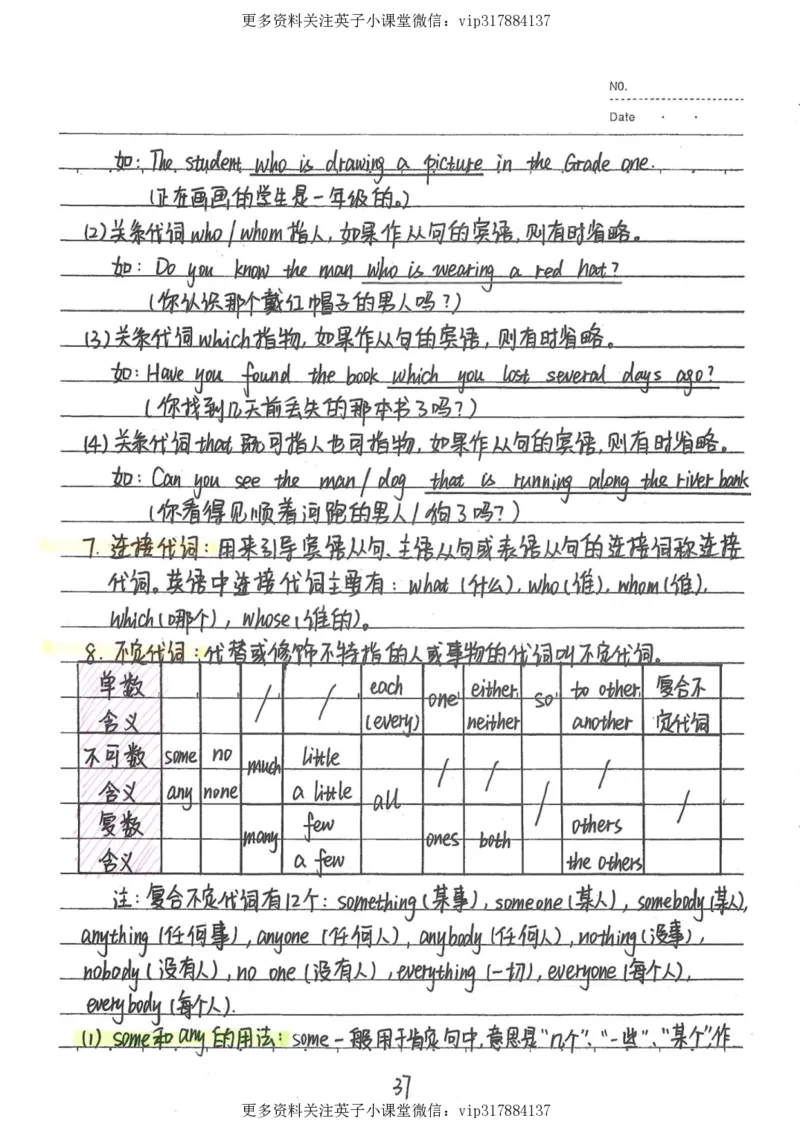 更多资料关注英子小课堂微信：vip317884137
NO.
Date · ·
如：The student who is drawing a picture in the Grade one.
(正在画画的学生是一年级的。)
(2)关系代词who/whom指人，如果作从句的宾语，则有时省略。
如：Do you know the man who is wearing a red hat?
(你认识那个戴红帽子的男人吗？)
(3)关系代词which指物，如果作从句的宾语，则有时省略。
如：Have you found the book which you lost several days ago?
(你找到几天前丢失的那本书了吗？)
(4)关系代词that既可指人也可指物，如果作从句的宾语，则有时省略。
如：Can you see the man/dog that is running along the river bank
(你看得见顺着河跑的男人/狗了吗？)
7. 连接代词：用来引导宾语从句、主语从句或表语从句的连接词称连接
代词。英语中连接代词主要有：what(什么)，who(谁)，whom(谁)，
which(哪个)，whose(谁的)。
8. 不定代词：代替或修饰不特指的人或事物的代词叫不定代词。
单数 / / each either to other 复合不
含义 (every) one neither so another 定代词
不可数 some no much little / / / 
含义 any none a little all / /
复数 many few ones both others
含义 a few the others
注：复合不定代词有12个：something(某事)，someone(某人)，somebody(某人)，
anything(任何事)，anyone(任何人)，anybody(任何人)，nothing(没事)，
nobody(没有人)，no one(没有人)，everything(一切)，everyone(每个人)，
everybody(每个人)．
(1) some和any的用法：some一般用于肯定句中，意思是“几个”、“一些”、“某个”，作
37
更多资料关注英子小课堂微信：vip317884137